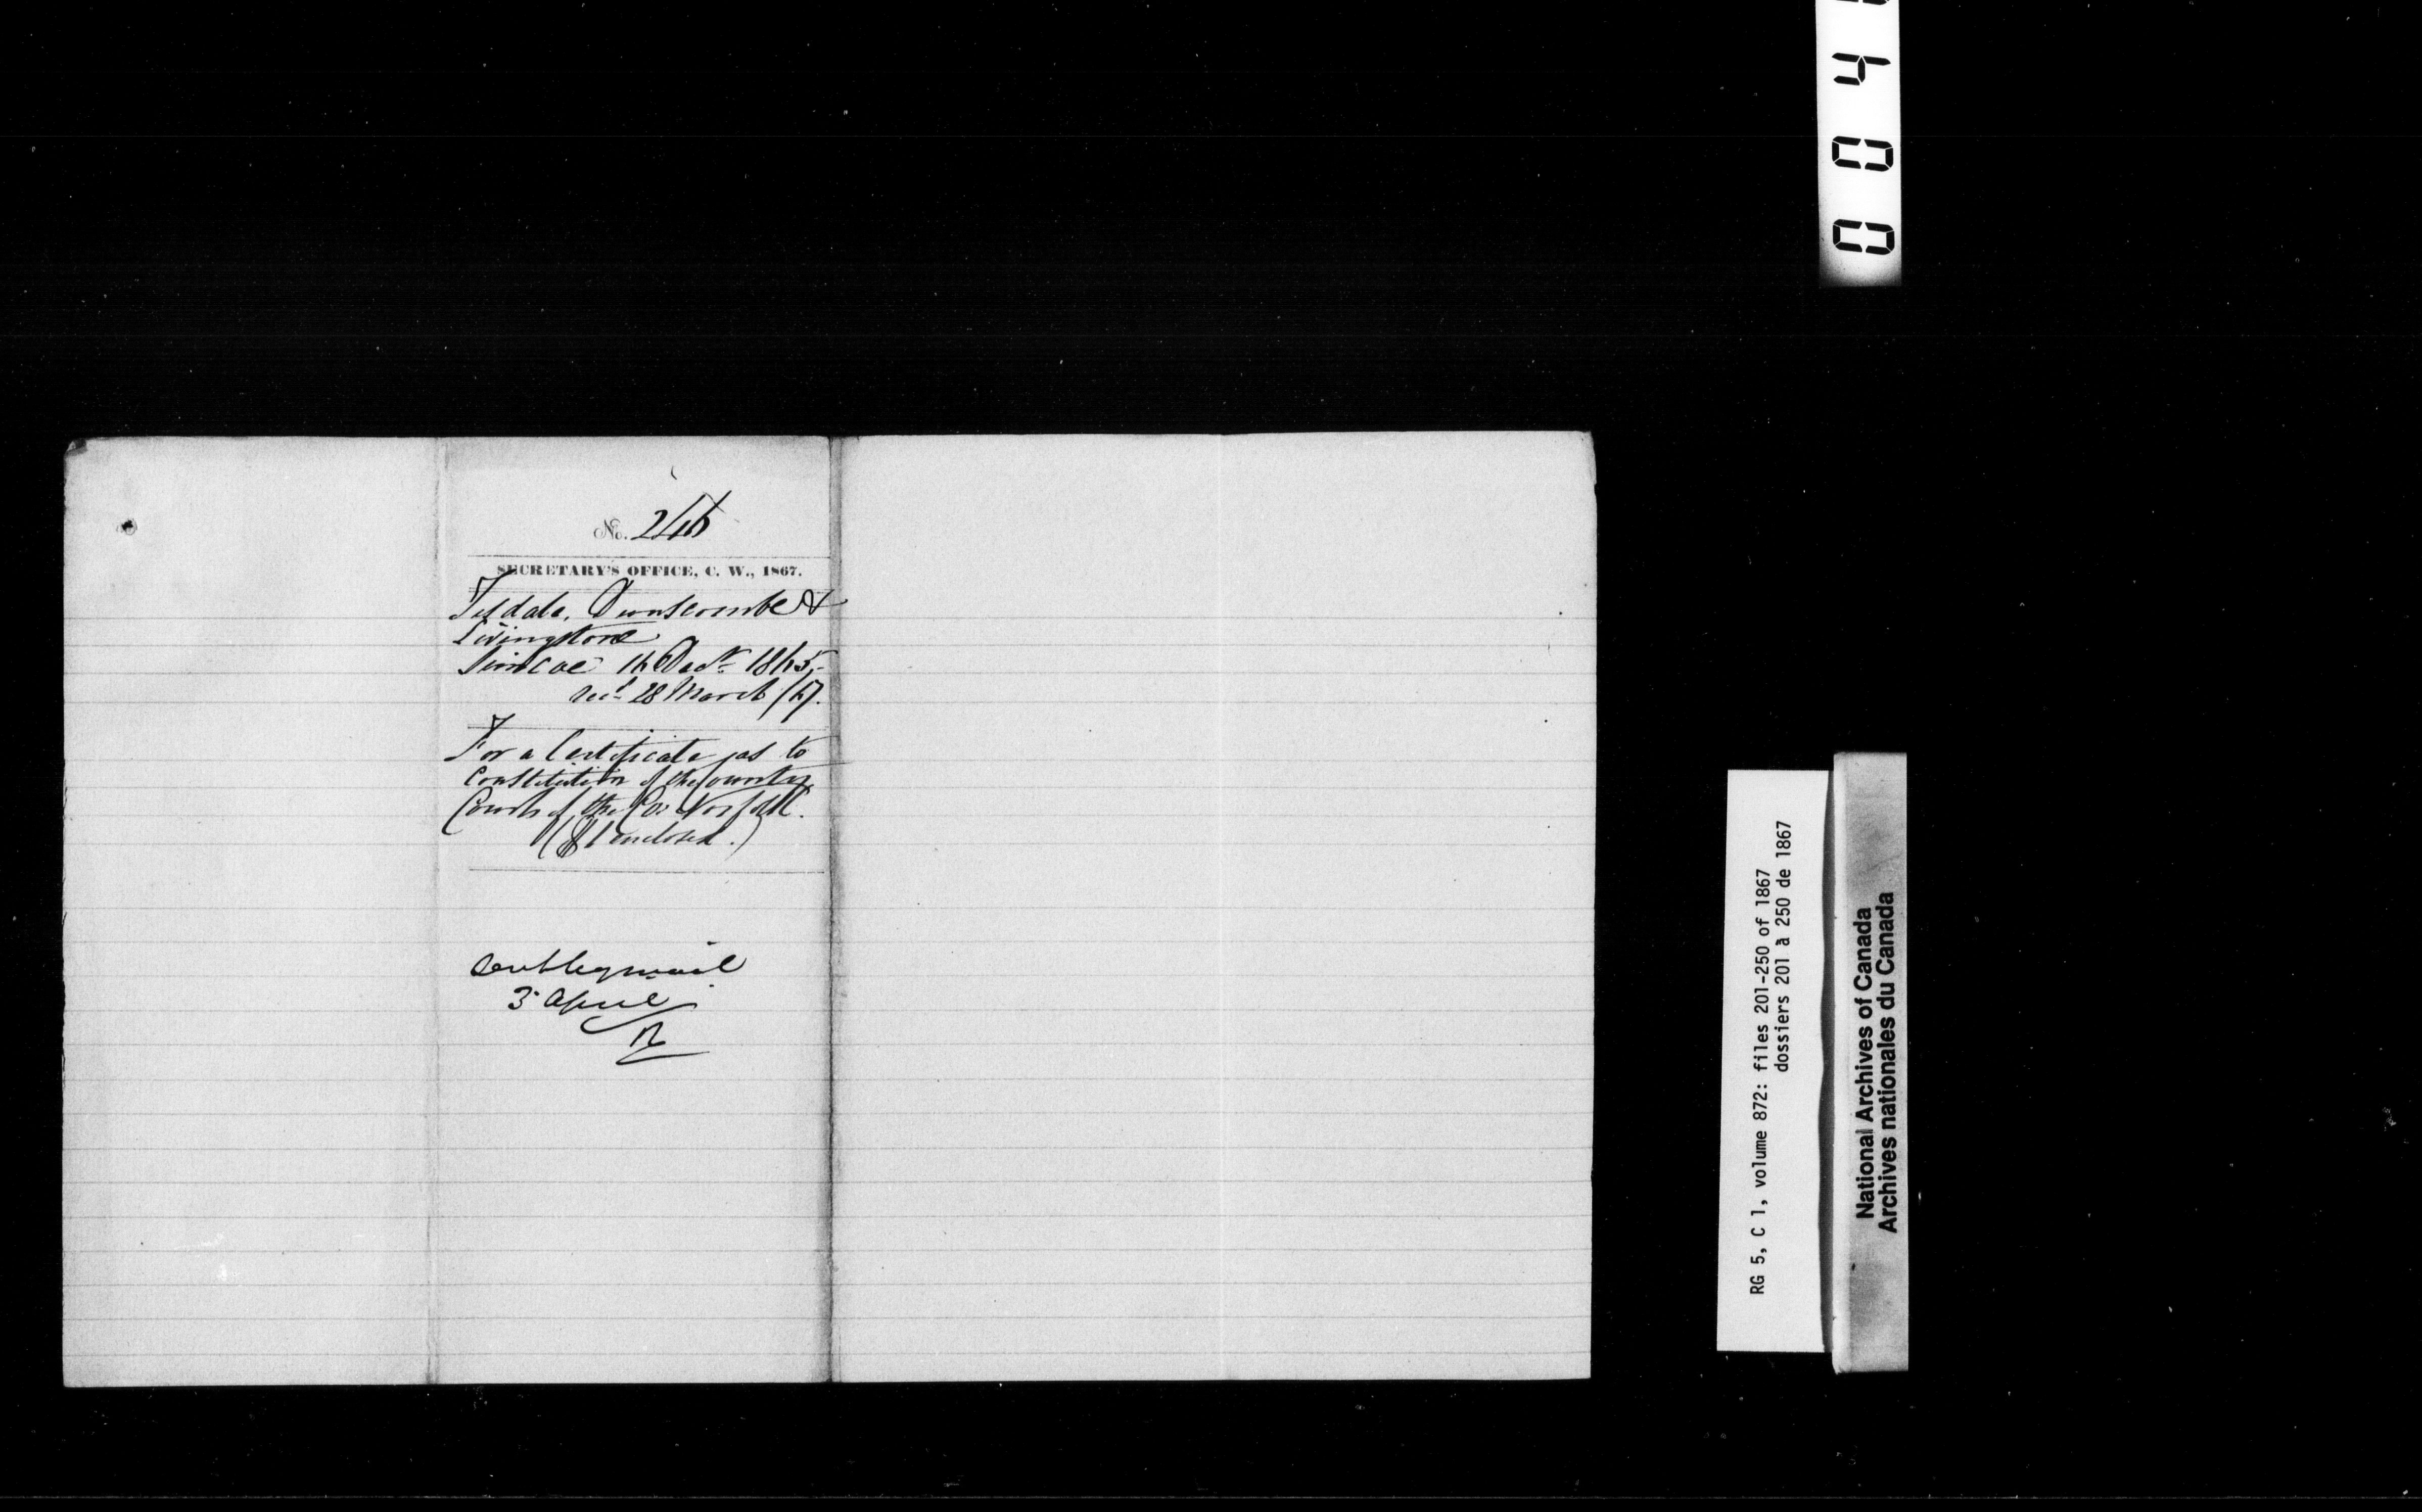 No. 246
SECRETARY'S OFFICE, C. W., 1867.
Tisdale, Dunscombe &
Livingstone
Simcoe 16 Decr 1865,-
recd 28 March /67.
For a Certificate as to
Constitution of the County
Courts of the Co: Norfolk.
($1 enclosed.)
Sent by mail
3 April
0 0 4
RG 5, C 1, volume 872: files 201-250 of 1867
dossiers 201 à 250 de 1867
National Archives of Canada
Archives nationales du Canada